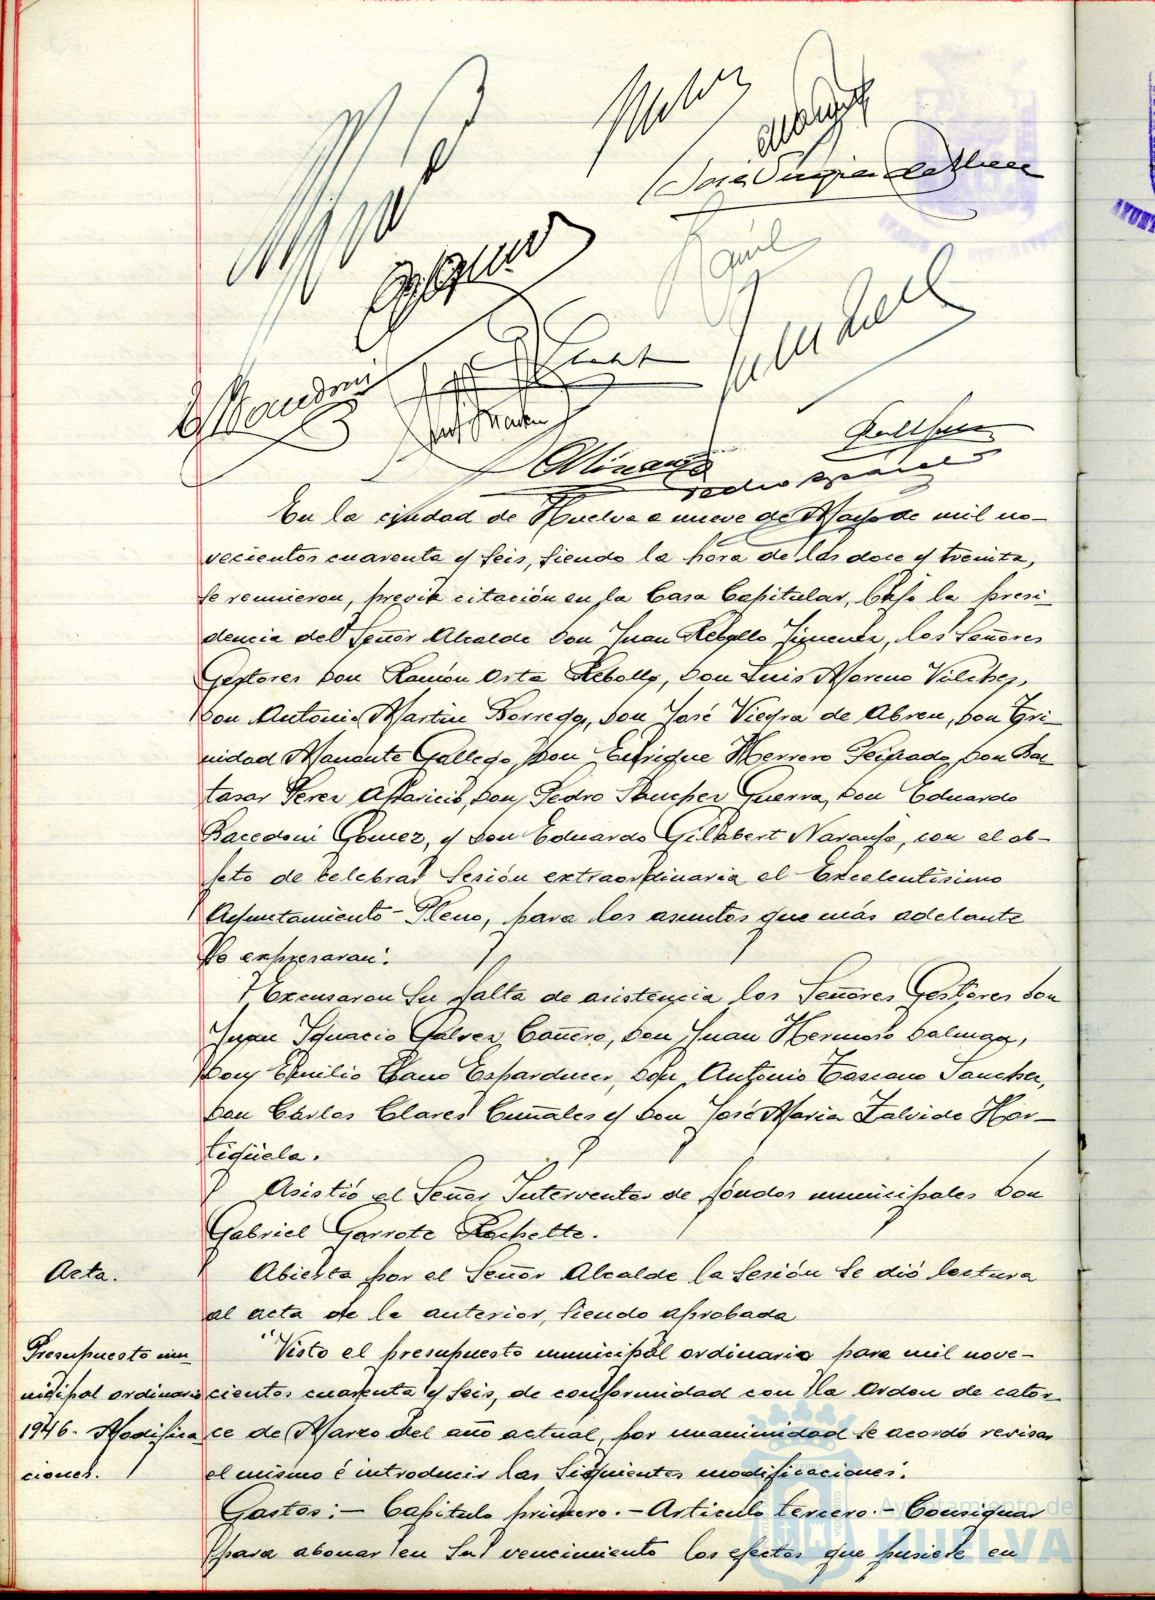 José Viegra de Abreu
En la ciudad de Huelva a nueve de Mayo de mil no-
vecientos cuarenta y seis, siendo la hora de las doce y treinta,
se reunieron, previa citación en la Casa Capitular, bajo la presi-
dencia del Señor Alcalde Don Juan Rebollo Jimenez, los Señores
Gestores Don Ramón Orta Rebollo, Don Luis Moreno Vilchez,
Don Antonio Martin Borrego, Don José Viegra de Abreu, Don Tri-
nidad Manante Gallego, Don Enrique Herrero Don Bal-
tasar Perez Aparicio, Don Pedro Sanchez Guerra, Don Eduardo
Bacedoni Gomez, y Don Eduardo Gilabert Naranjo, con el ob-
jeto de celebrar Sesión extraordinaria el Excelentísimo
Ayuntamiento-Pleno, para los asuntos que más adelante
se expresaran.
Excusaron su falta de asistencia los Señores Gestores Don
Juan Ignacio Galvez Cañero, Don Juan Hermoso Dalmao,
Don Emilio Cano Don Antonio Toscano Sanchez,
Don Cárlos Clares y Don José Maria Zalvide Hor-
tigüela.
Asistió el Señor Interventor de fondos municipales Don
Gabriel Garrote Rochette.
Acta.
Abierta por el Señor Alcalde la Sesión se dió lectura
al acta de la anterior, siendo aprobada
Presupuesto mu-
nicipal ordinario
1946. Modifica
ciones.
Visto el presupuesto municipal ordinario para mil nove-
cientos cuarenta y seis, de conformidad con la Orden de cator-
ce de Marzo del año actual, por unanimidad se acordó revisar
el mismo é introducir las siguientes modificaciones:
Gastos:- Capitulo primero.- Articulo tercero.- Consignar
para abonar en su vencimiento los efectos que pusiese en
Ayuntamiento de
HUELVA